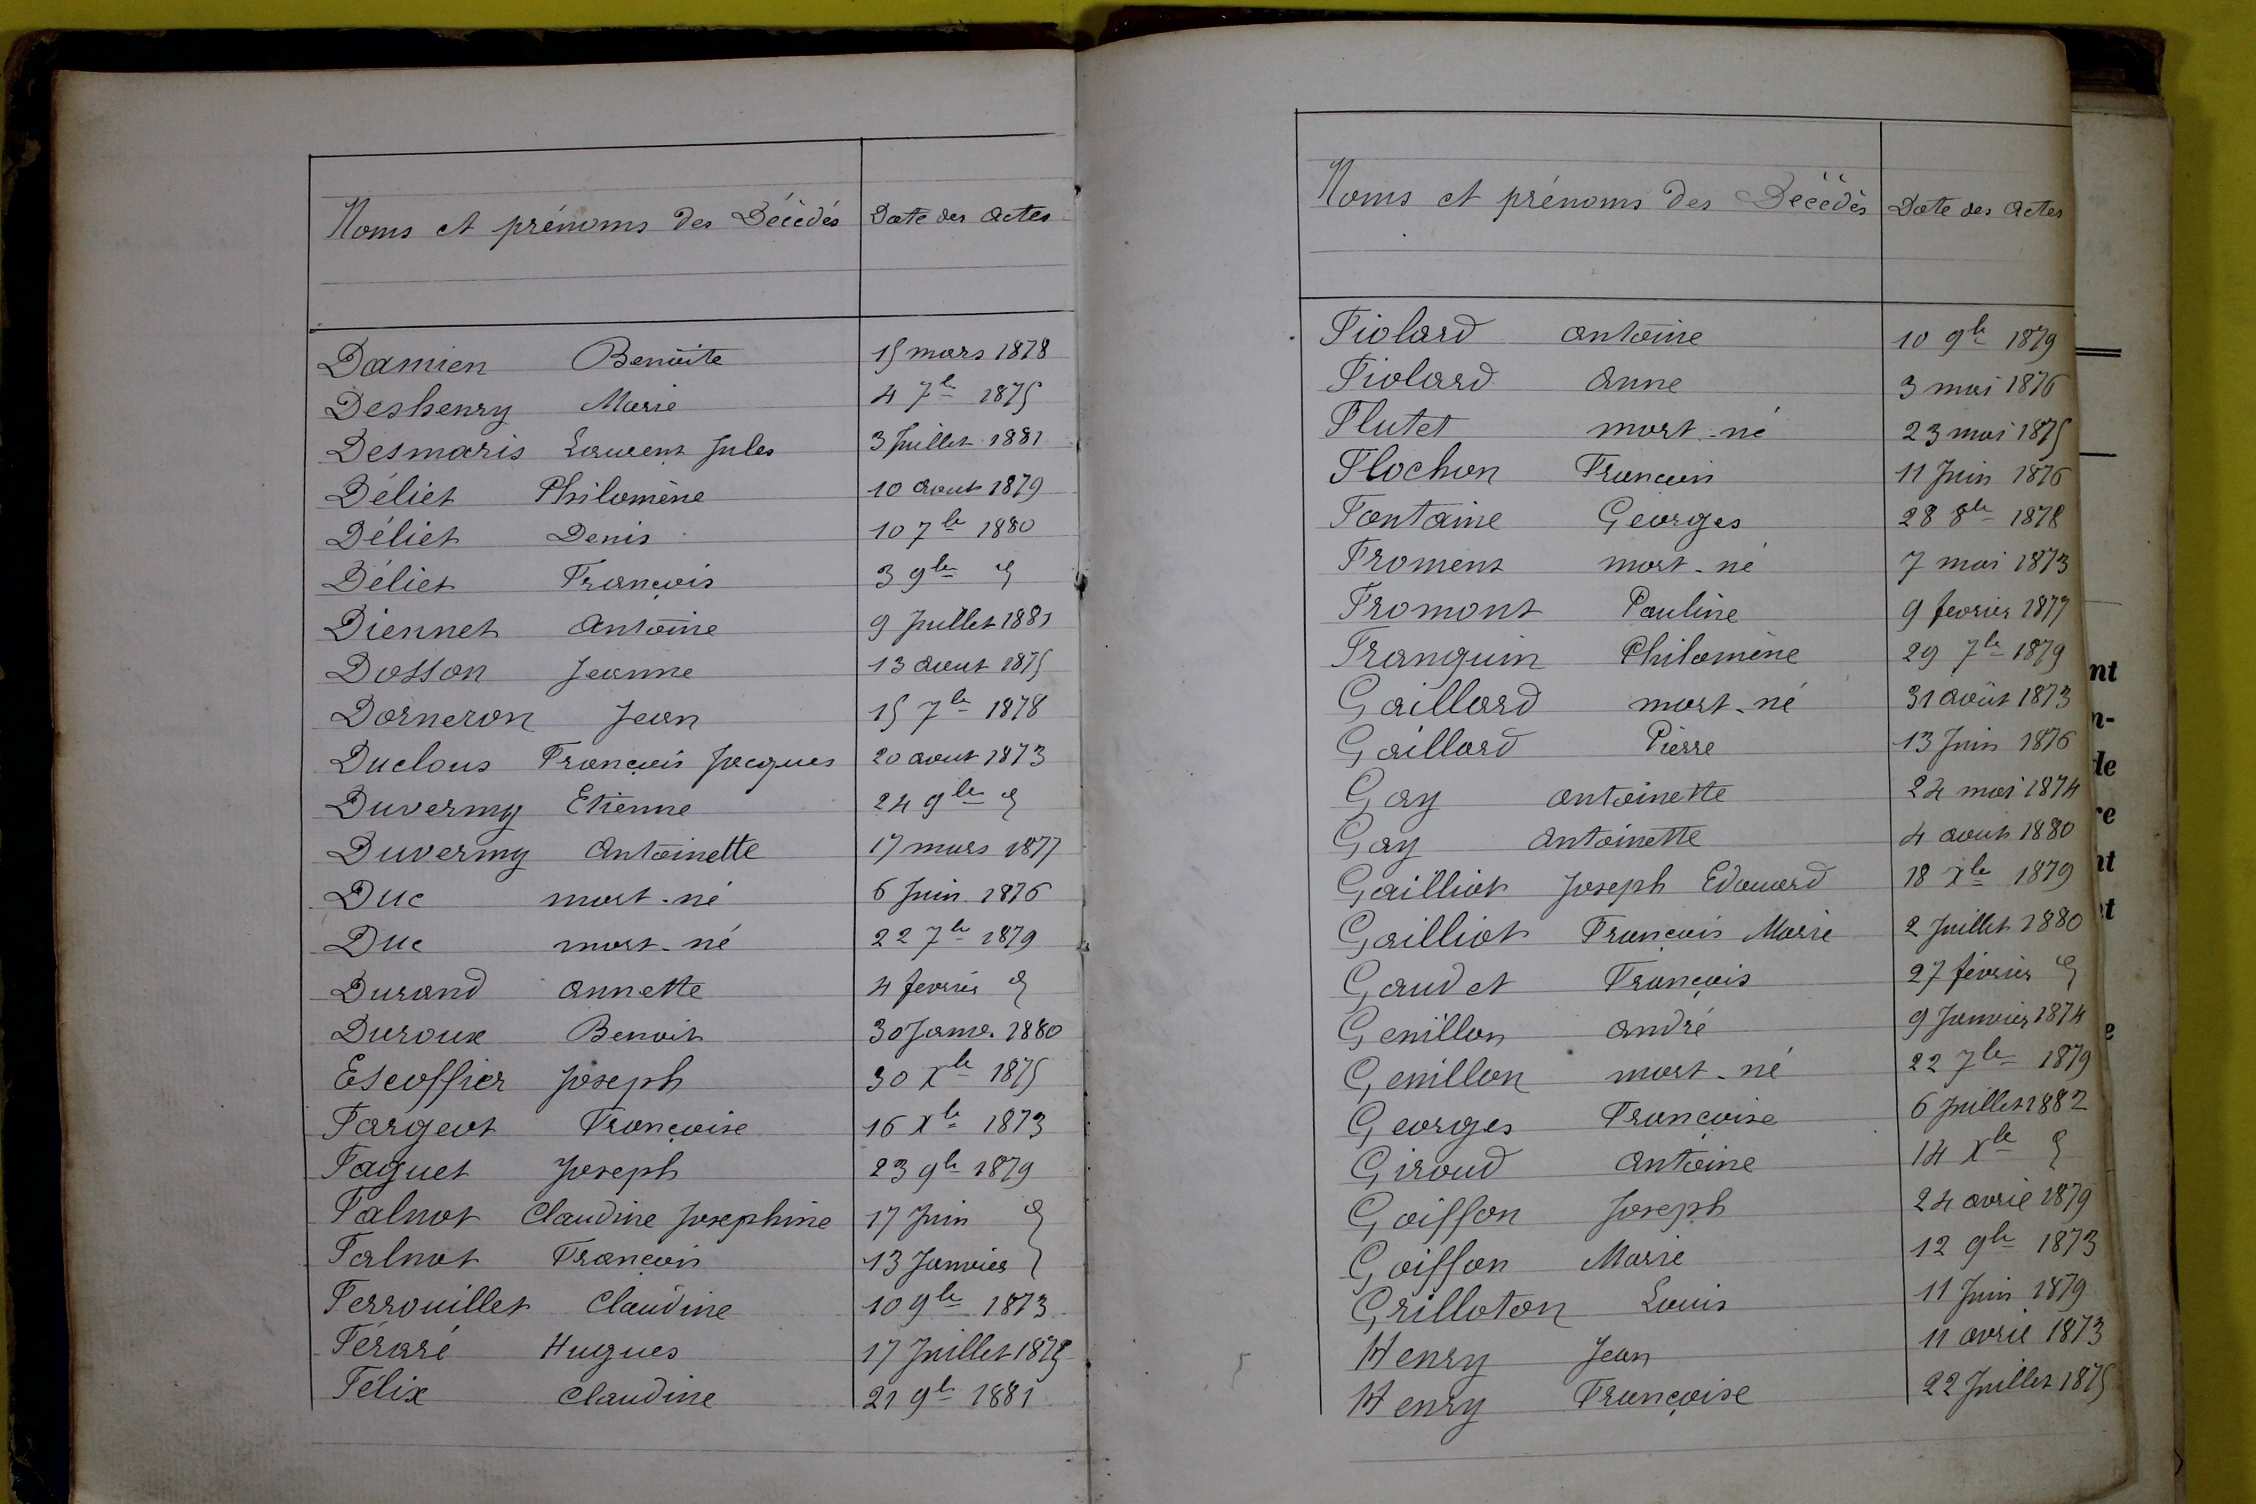 Noms et prénoms des Décédés Date des Actes
Damien Benoite 15 mars 1878
Deshenry Marie 4 7bre 1875
Desmaris Laurent Jules 3 Juillet 1881
Déliet Philomène 10 aout 1879
Déliet Denis 10 7bre 1880
Déliet François 3 9bre d
Diennet Antoine 9 Juillet 1881
Dosson Jeanne 13 aout 1875
Dorneron Jean 15 7bre 1878
Duclous François Jacques 20 aout 1873
Duvermy Etienne 24 9bre d
Duvermy Antoinette 17 mars 1877
Duc mort-né 6 Juin 1876
Duc mort-né 22 7bre 1879
Durand Annette 4 fevrier d
Duroux Benoit 30 Janv. 1880
Escoffier Joseph 30 Xbre 1875
Fargeot Françoise 16 Xbre 1873
Faguet Joseph 23 9bre 1879
Falnot Claudine Josephine 17 Juin d
Falnot François 13 Janvier d
Ferrouillet Claudine 10 9bre 1873
Féraré Hugues 17 Juillet 1875
Félix Claudine 21 9bre 1881
Noms et prénoms des Décédés Date des Actes
Fiolard Antoine 10 9bre 1879
Fiolard Anne 3 mai 1876
Flutet mort-né 23 mai 1875
Flochon François 11 Juin 1876
Fontaine Georges 28 8bre 1878
Froment mort-né 7 mai 1873
Fromont Pauline 9 fevrier 1877
Franguin Philomène 29 7bre 1879
Gaillard mort-né 31 août 1873
Gaillard Pierre 13 Juin 1876
Gay Antoinette 24 mai 1874
Gay Antoinette 4 aout 1880
Gailliot Joseph Edouard 18 Xbre 1879
Gailliot François Marie 2 Juillet 1880
Gaudet François 27 février d
Genillon André 9 Janvier 1874
Genillon mort-né 22 7bre 1879
Georges Françoise 6 Juillet 1882
Giroud Antoine 14 Xbre d
Goiffon Joseph 24 avril 1879
Goiffon Marie 12 9bre 1873
Grilloton Louis 11 Juin 1879
Henry Jean 11 avril 1873
Henry Françoise 22 Juillet 1875
nt
n-
de
re
nt
et
e